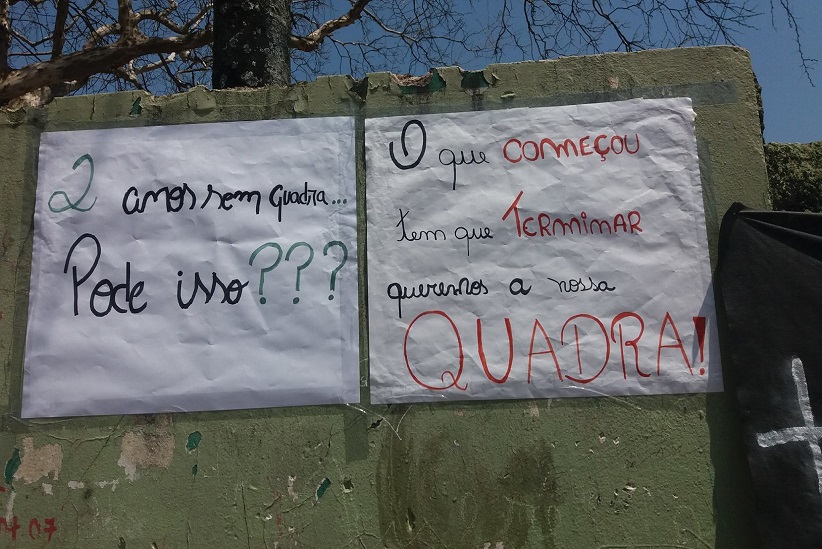 2 anos sem quadra...
Pode isso???
O que COMEÇOU
tem que TERMINAR
queremos a nossa
QUADRA!
07 07